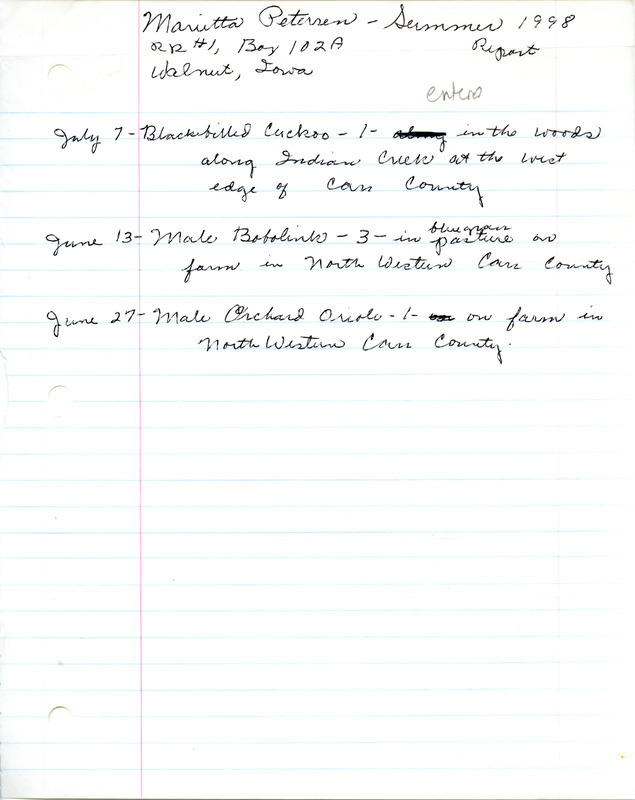 Marietta Petersen - Summer 1998
RR #1, Box 102A Report
Walnut, Iowa
enters
July 7 - Blackbilled Cuckoo - 1 - along in the woods
along Indian Creek at the west
edge of Cass County
bluegrass
June 13 - Male Bobolink - 3 - in pasture on
farm in North Western Cass County
June 27 - Male Orchard Oriole - 1 - on farm in
North Western Cass County.